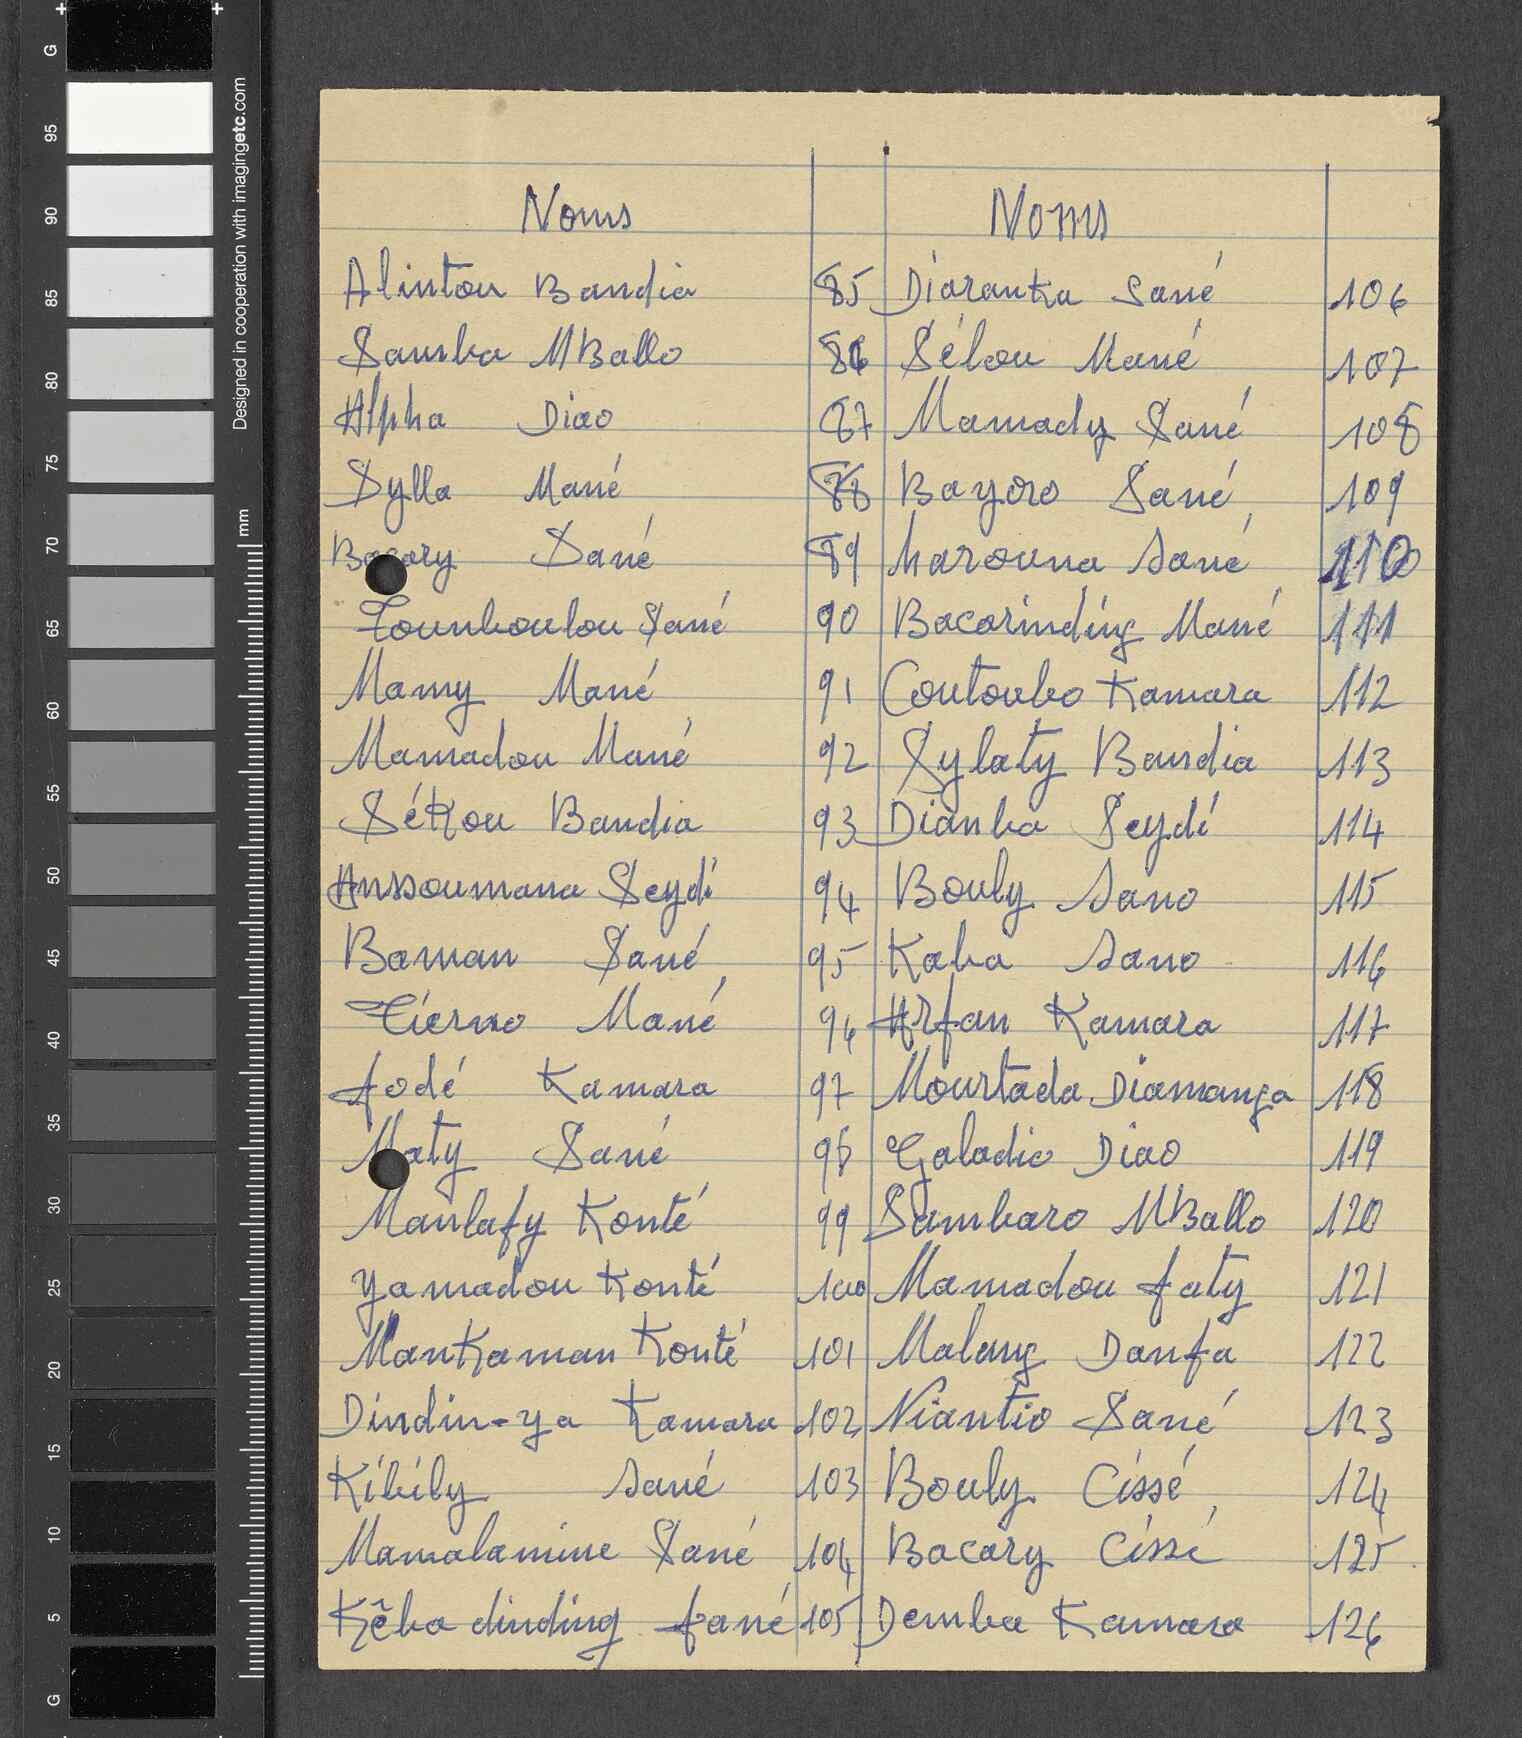 Noms Noms
Alintou Bandia 85 Diaranka Sané 106
Samba MBallo 86 Sélou Mané 107
Alpha Diao 87 Mamady Sané 108
Sylla Mané 88 Bayoro Sané 109
Bacary Sané 89 harouna Sané 110
Tounboulou Sané 90 Bacarinding Mané 111
Mamy Mané 91 Coutoubo Kamara 112
Mamadou Mané 92 Sylaty Bandia 113
Sékou Bandia 93 Dianba Seydi 114
Anssoumana Seydi 94 Bouly Sano 115
Baman Sané 95 Kaba Sano 116
Tierno Mané 96 Arfan Kamara 117
fodé Kamara 97 Mourtada Diamanga 118
Maty Sané 98 Galadio Diao 119
Manlafy Konté 99 Sambaro MBallo 120
Yamadou Konté 100 Mamadou faty 121
Mankaman Konté 101 Malang Danfa 122
Dindin-ya Kamara 102 Niantio Sané 123
Kibily Sané 103 Bouly Cissé 124
Mamalamine Sané 104 Bacary Cissé 125
Kêba dinding fané 105 Demba Kamara 126
G
95
90
85
80
75
70
65
60
55
50
45
40
35
30
25
20
15
10
5
G
Designed in cooperation with imagingetc.com
mm